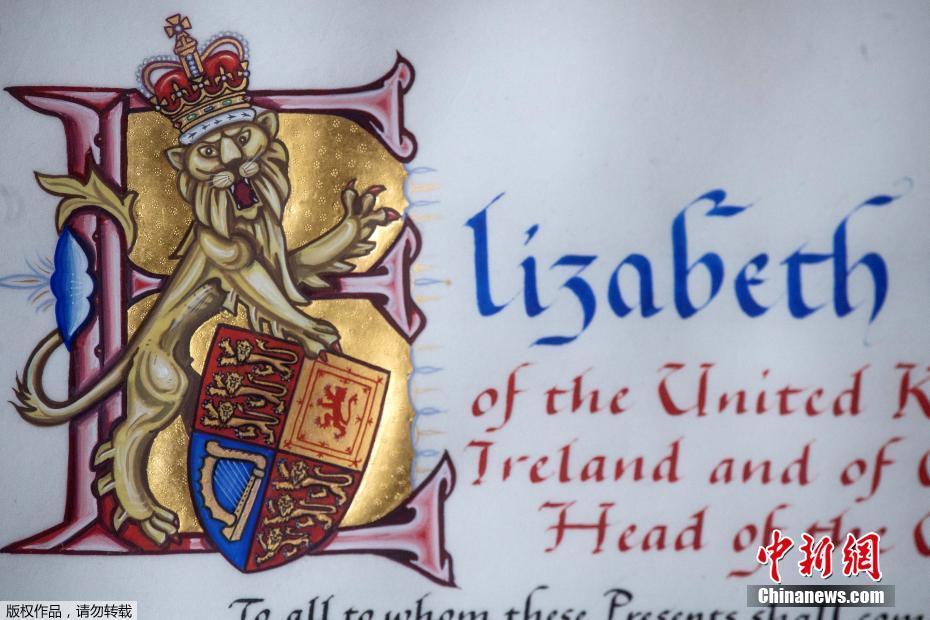 Elizabeth
of the United K
Ireland and of
Head of the C
To all to whom these Presents shall com
中新网
Chinanews.com
版权作品，请勿转载